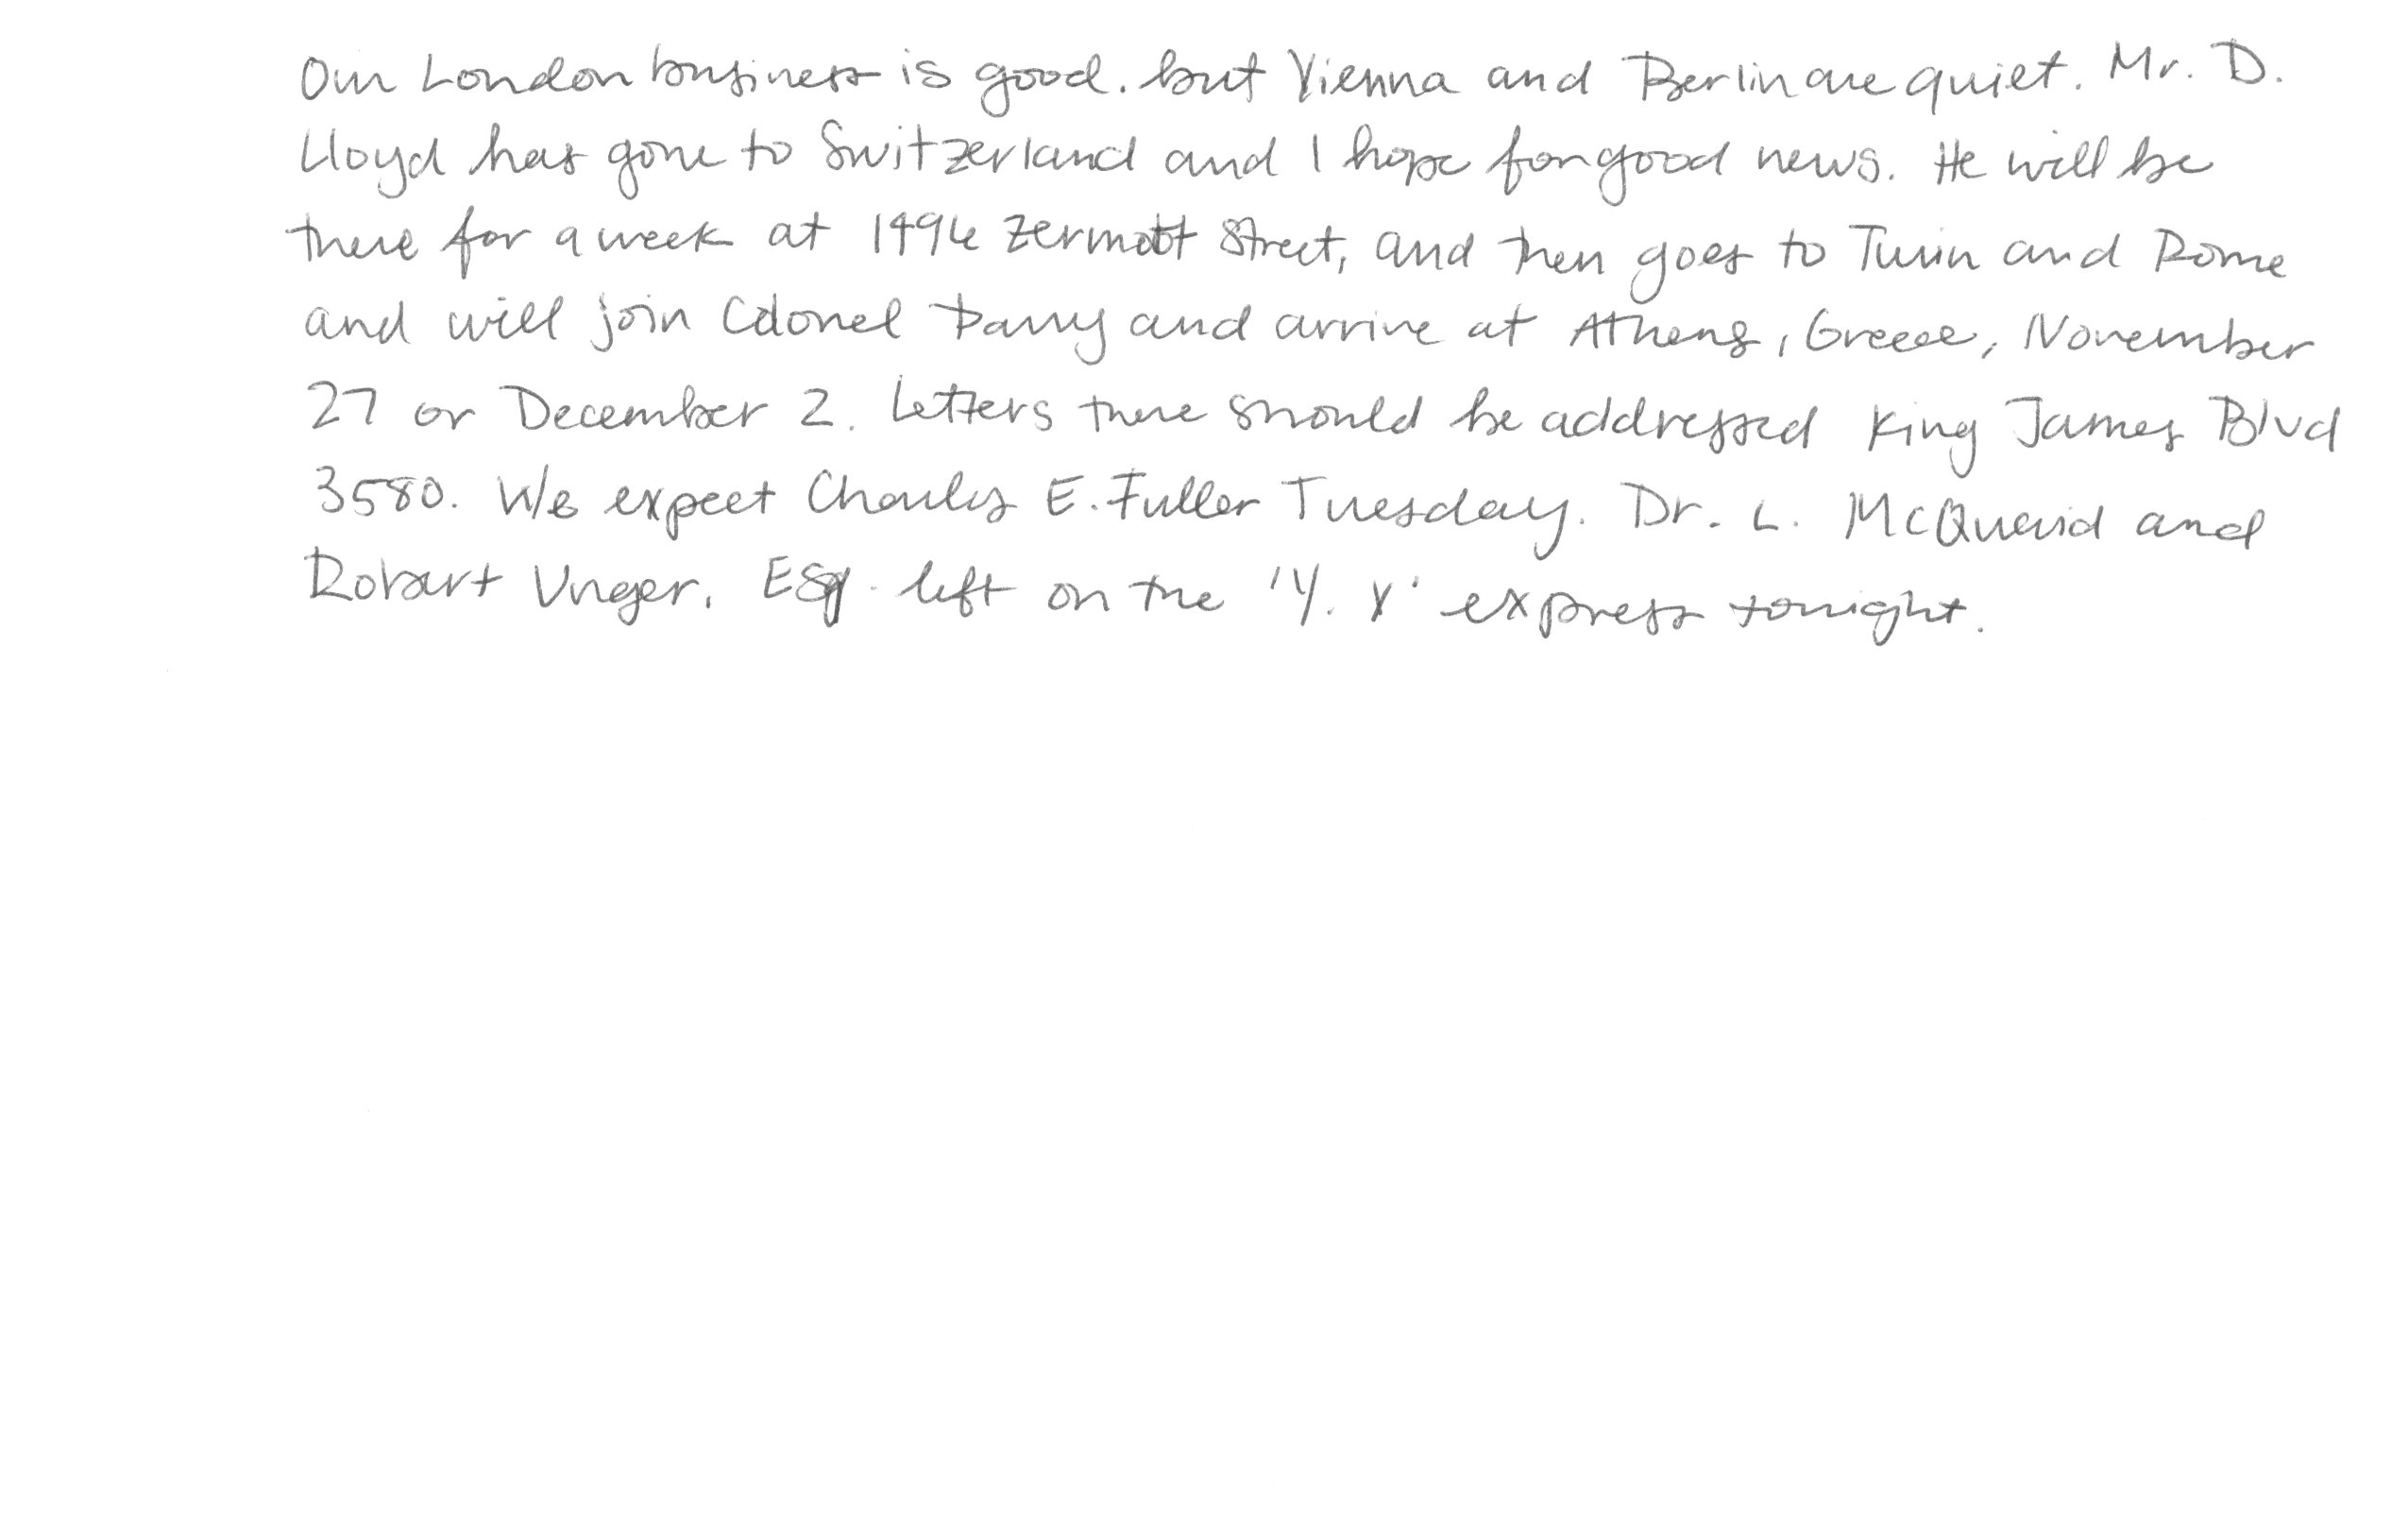 Our London business is good. but Vienna and Berlin are quiet. Mr. D.
Lloyd has gone to Switzerland and I hope for good news. He will be
there for a week at 1496 Zermott Street, and then goes to Turin and Rome
and will join Colonel Parry and arrive at Athens, Greece, November
27 or December 2. Letters there should be addressed King James Blvd
3580. We expect Charles E. Fuller Tuesday. Dr. L. McQuaid and
Robert Unger, Esq. left on the 'Y. X' express tonight.